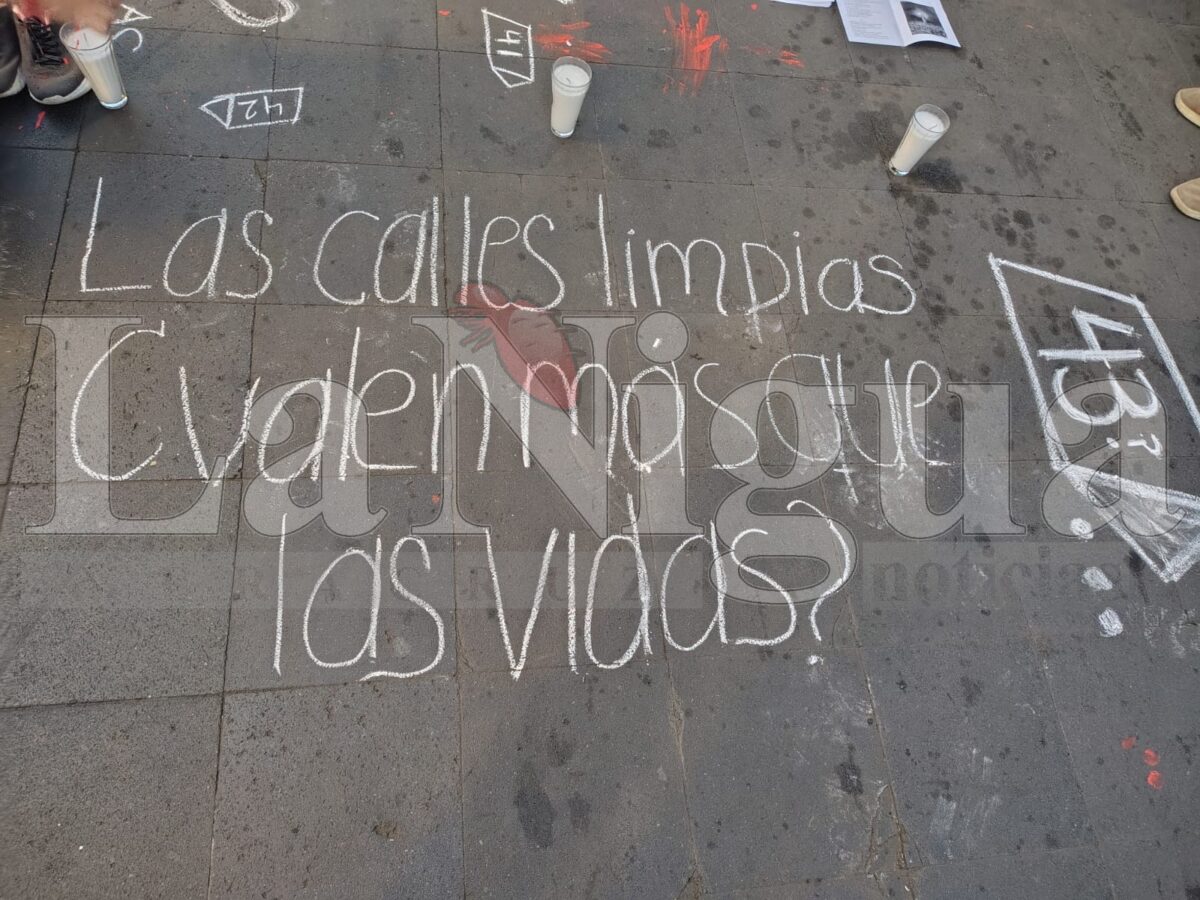 41
42
Las calles limpias
Cvalen más que
las vidas?
43?
La Nigua
noticias